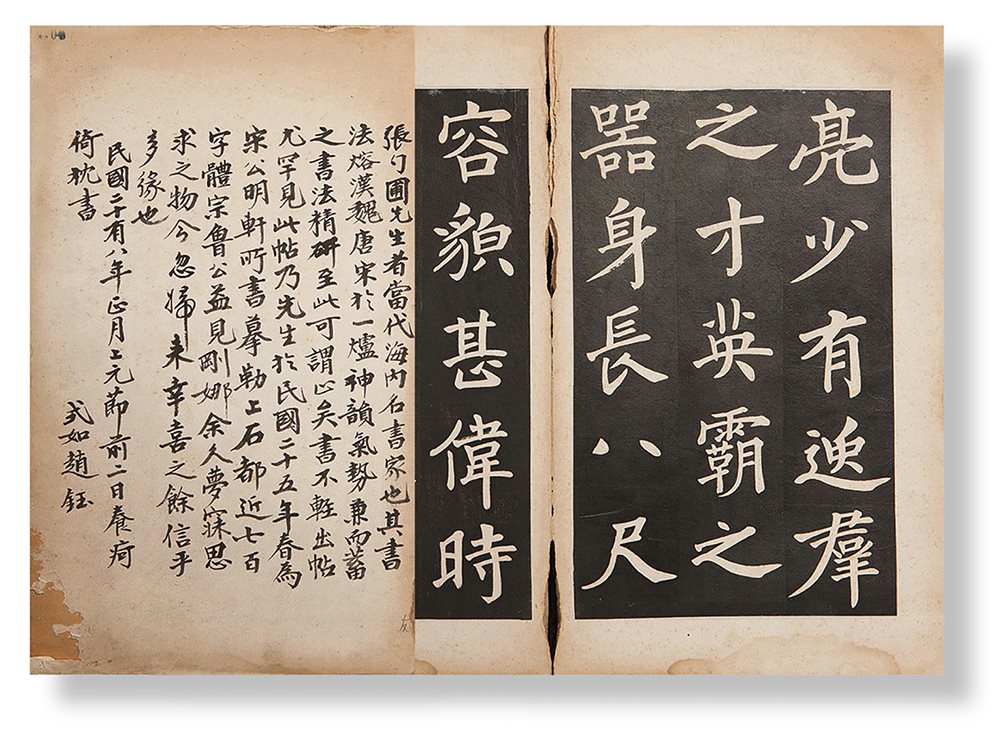 亮少有逸羣
之才英霸之
器身長八尺
容貌甚偉時
張勺圃先生者當代海內名書家也其書
法熔漢魏唐宋於一爐神韻氣勢兼而蓄
之書法精研至此可謂止矣書不輕出帖
尤罕見此帖乃先生於民國二十五年春為
宋公明軒所書摹勒上石都近七百
字體宗魯公益見剛娜余久夢寐思
求之物今忽歸來幸喜之餘信乎
多緣也
民國二十有八年正月上元節前二日養疴
倚枕書 式如趙鈺